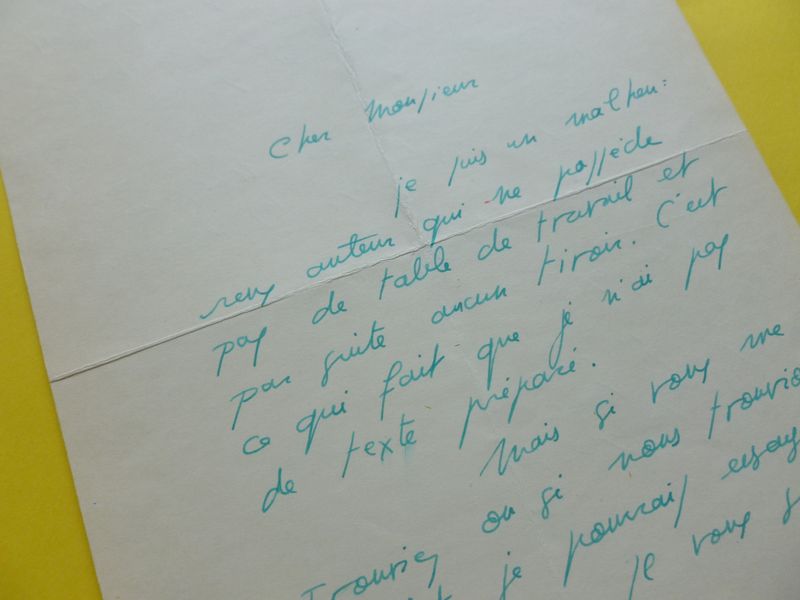 Cher Monsieur
je suis un malheu:
reux auteur qui ne possède
pas de table de travail et
par suite aucun tiroir. C'est
ce qui fait que je n'ai pas
de texte préparé.
Mais si vous me
trouviez ou si nous trouvio
je pourrais essay
je vous